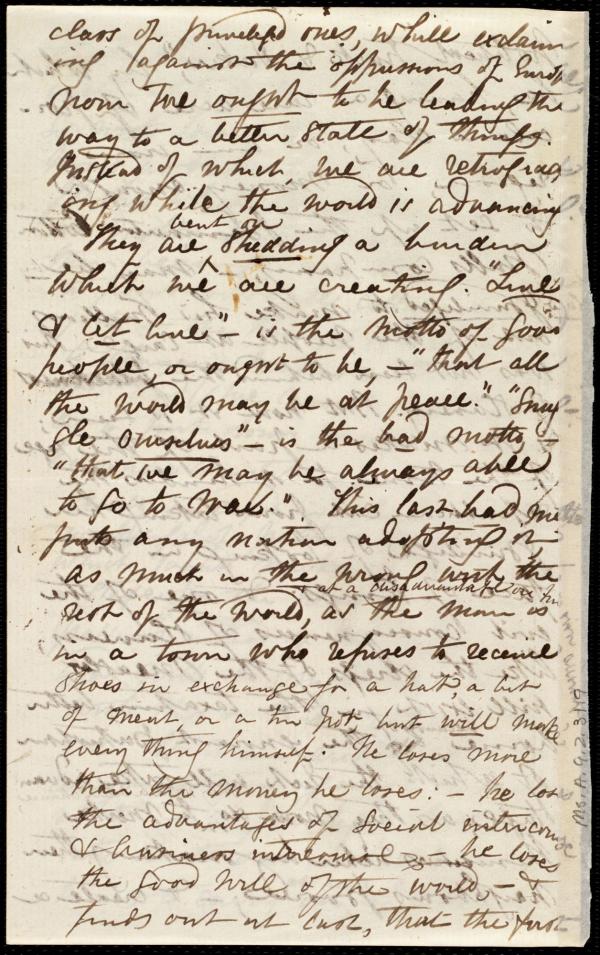 class of priviledged ones, while exclaim
ing against the oppressions of Europe
now we ought to be leading the
way to a better state of things.
Instead of which, we are retrograd
ing while the world is advancing
bent on
They are shedding a burden
which we are creating. "Live
& let live" – is the motto of good
people, or ought to be, – "that all
the world may be at peace." "Smug-
gle ourselves" – is the bad motto, –
"that we may be always able
to go to war." This last bad one
puts any nation adopting it,
as much in the wrong with the
& at a disadvantage
rest of the world, as the man is
in a town who refuses to receive
shoes in exchange for a hat, a bit
of meat, or a tin pot, but will make
every thing himself. He loses more
than the money he loses: – he loses
the advantages of social intercourse
& business intercourse – he loses
the good will of the world, – &
finds out at last, that the first
Ms. A. 9. 2. 3